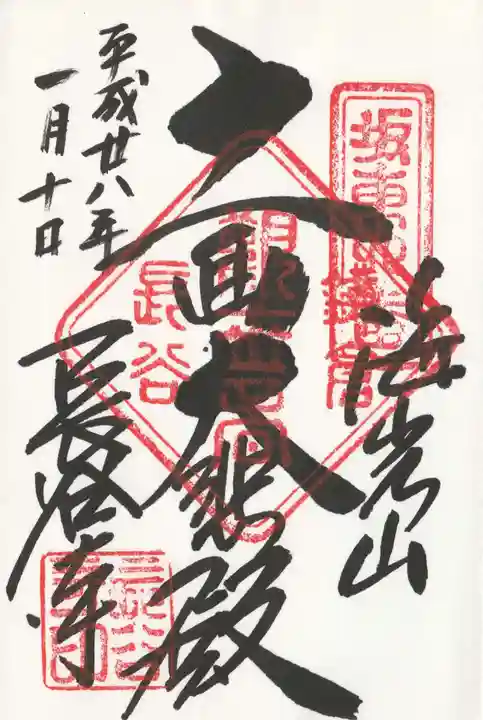 坂東四番
海光山
鎌倉
十一面大悲殿
観世音
長谷
平成廿八年
一月十日
長谷寺